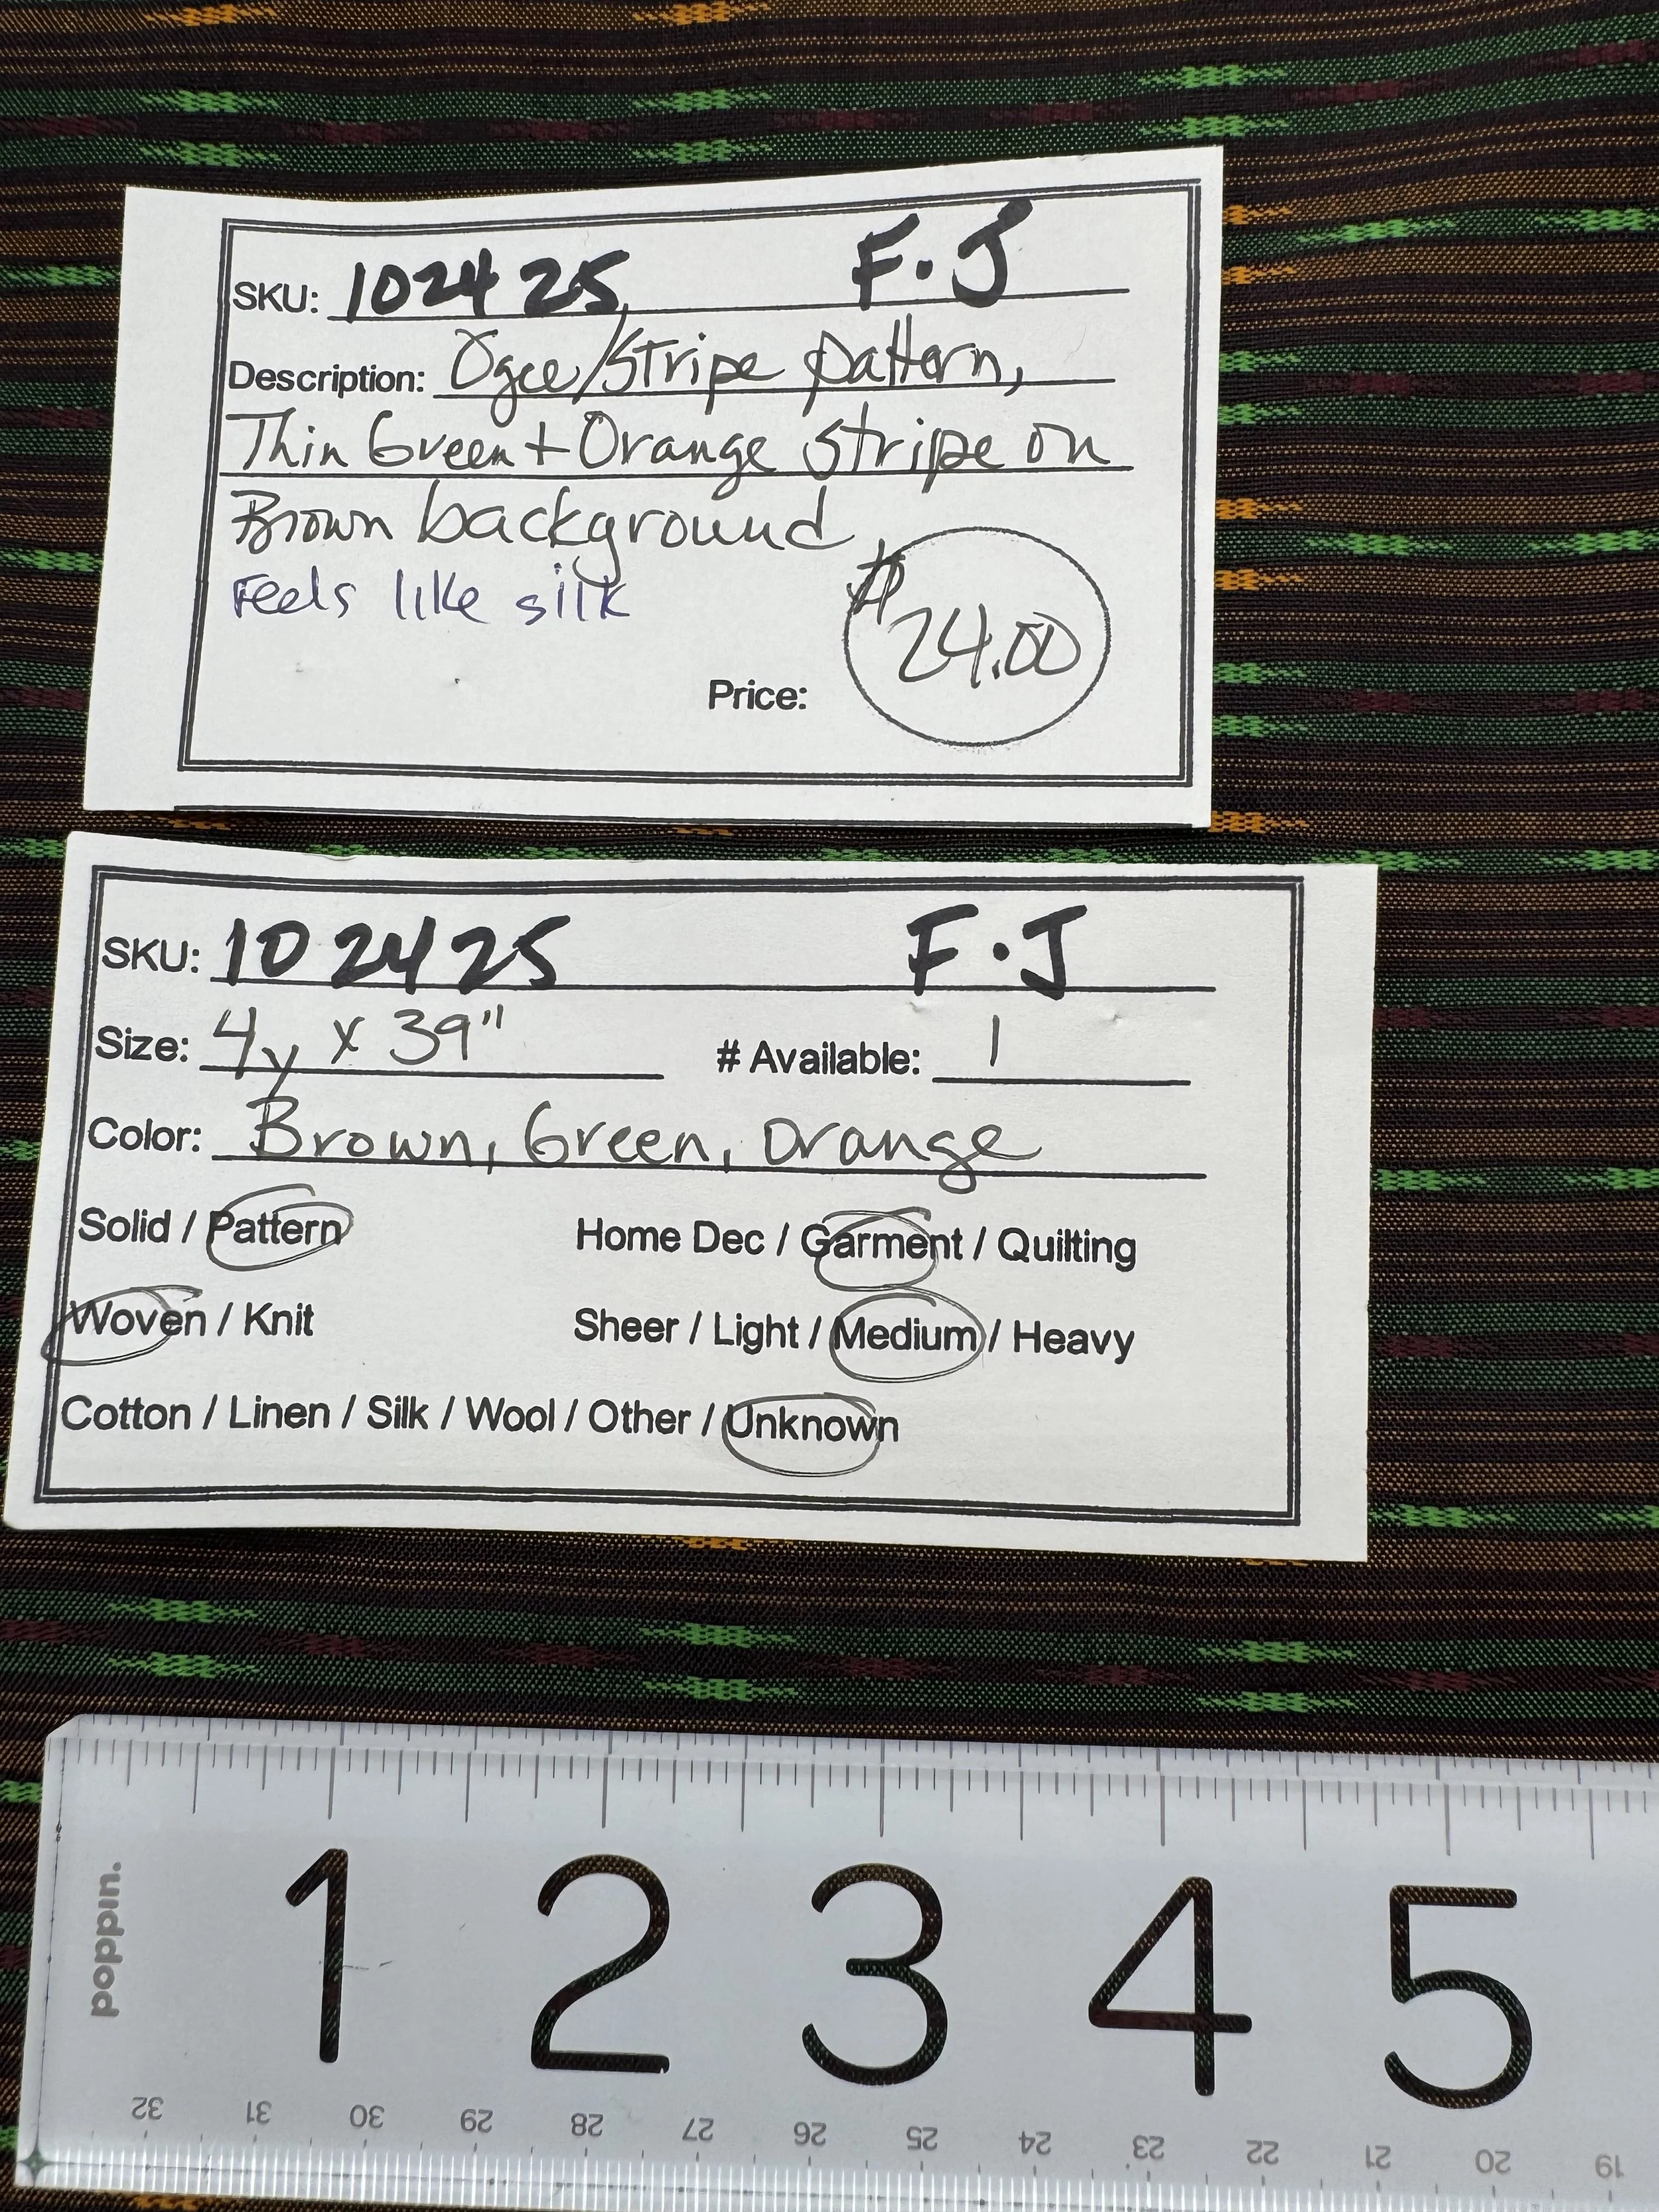 SKU: 102425 F.J
Description: Ogee/Stripe pattern,
Thin Green + Orange stripe on
Brown background
Feels like silk
$24.00
Price:
SKU: 102425 F.J
Size: 4y x 39" # Available: 1
Color: Brown, Green, Orange
Solid / Pattern Home Dec / Garment / Quilting
Woven / Knit Sheer / Light / Medium / Heavy
Cotton / Linen / Silk / Wool / Other / Unknown
poppin.
1 2 3 4 5
32 31 30 29 28 27 26 25 24 23 22 21 20 19